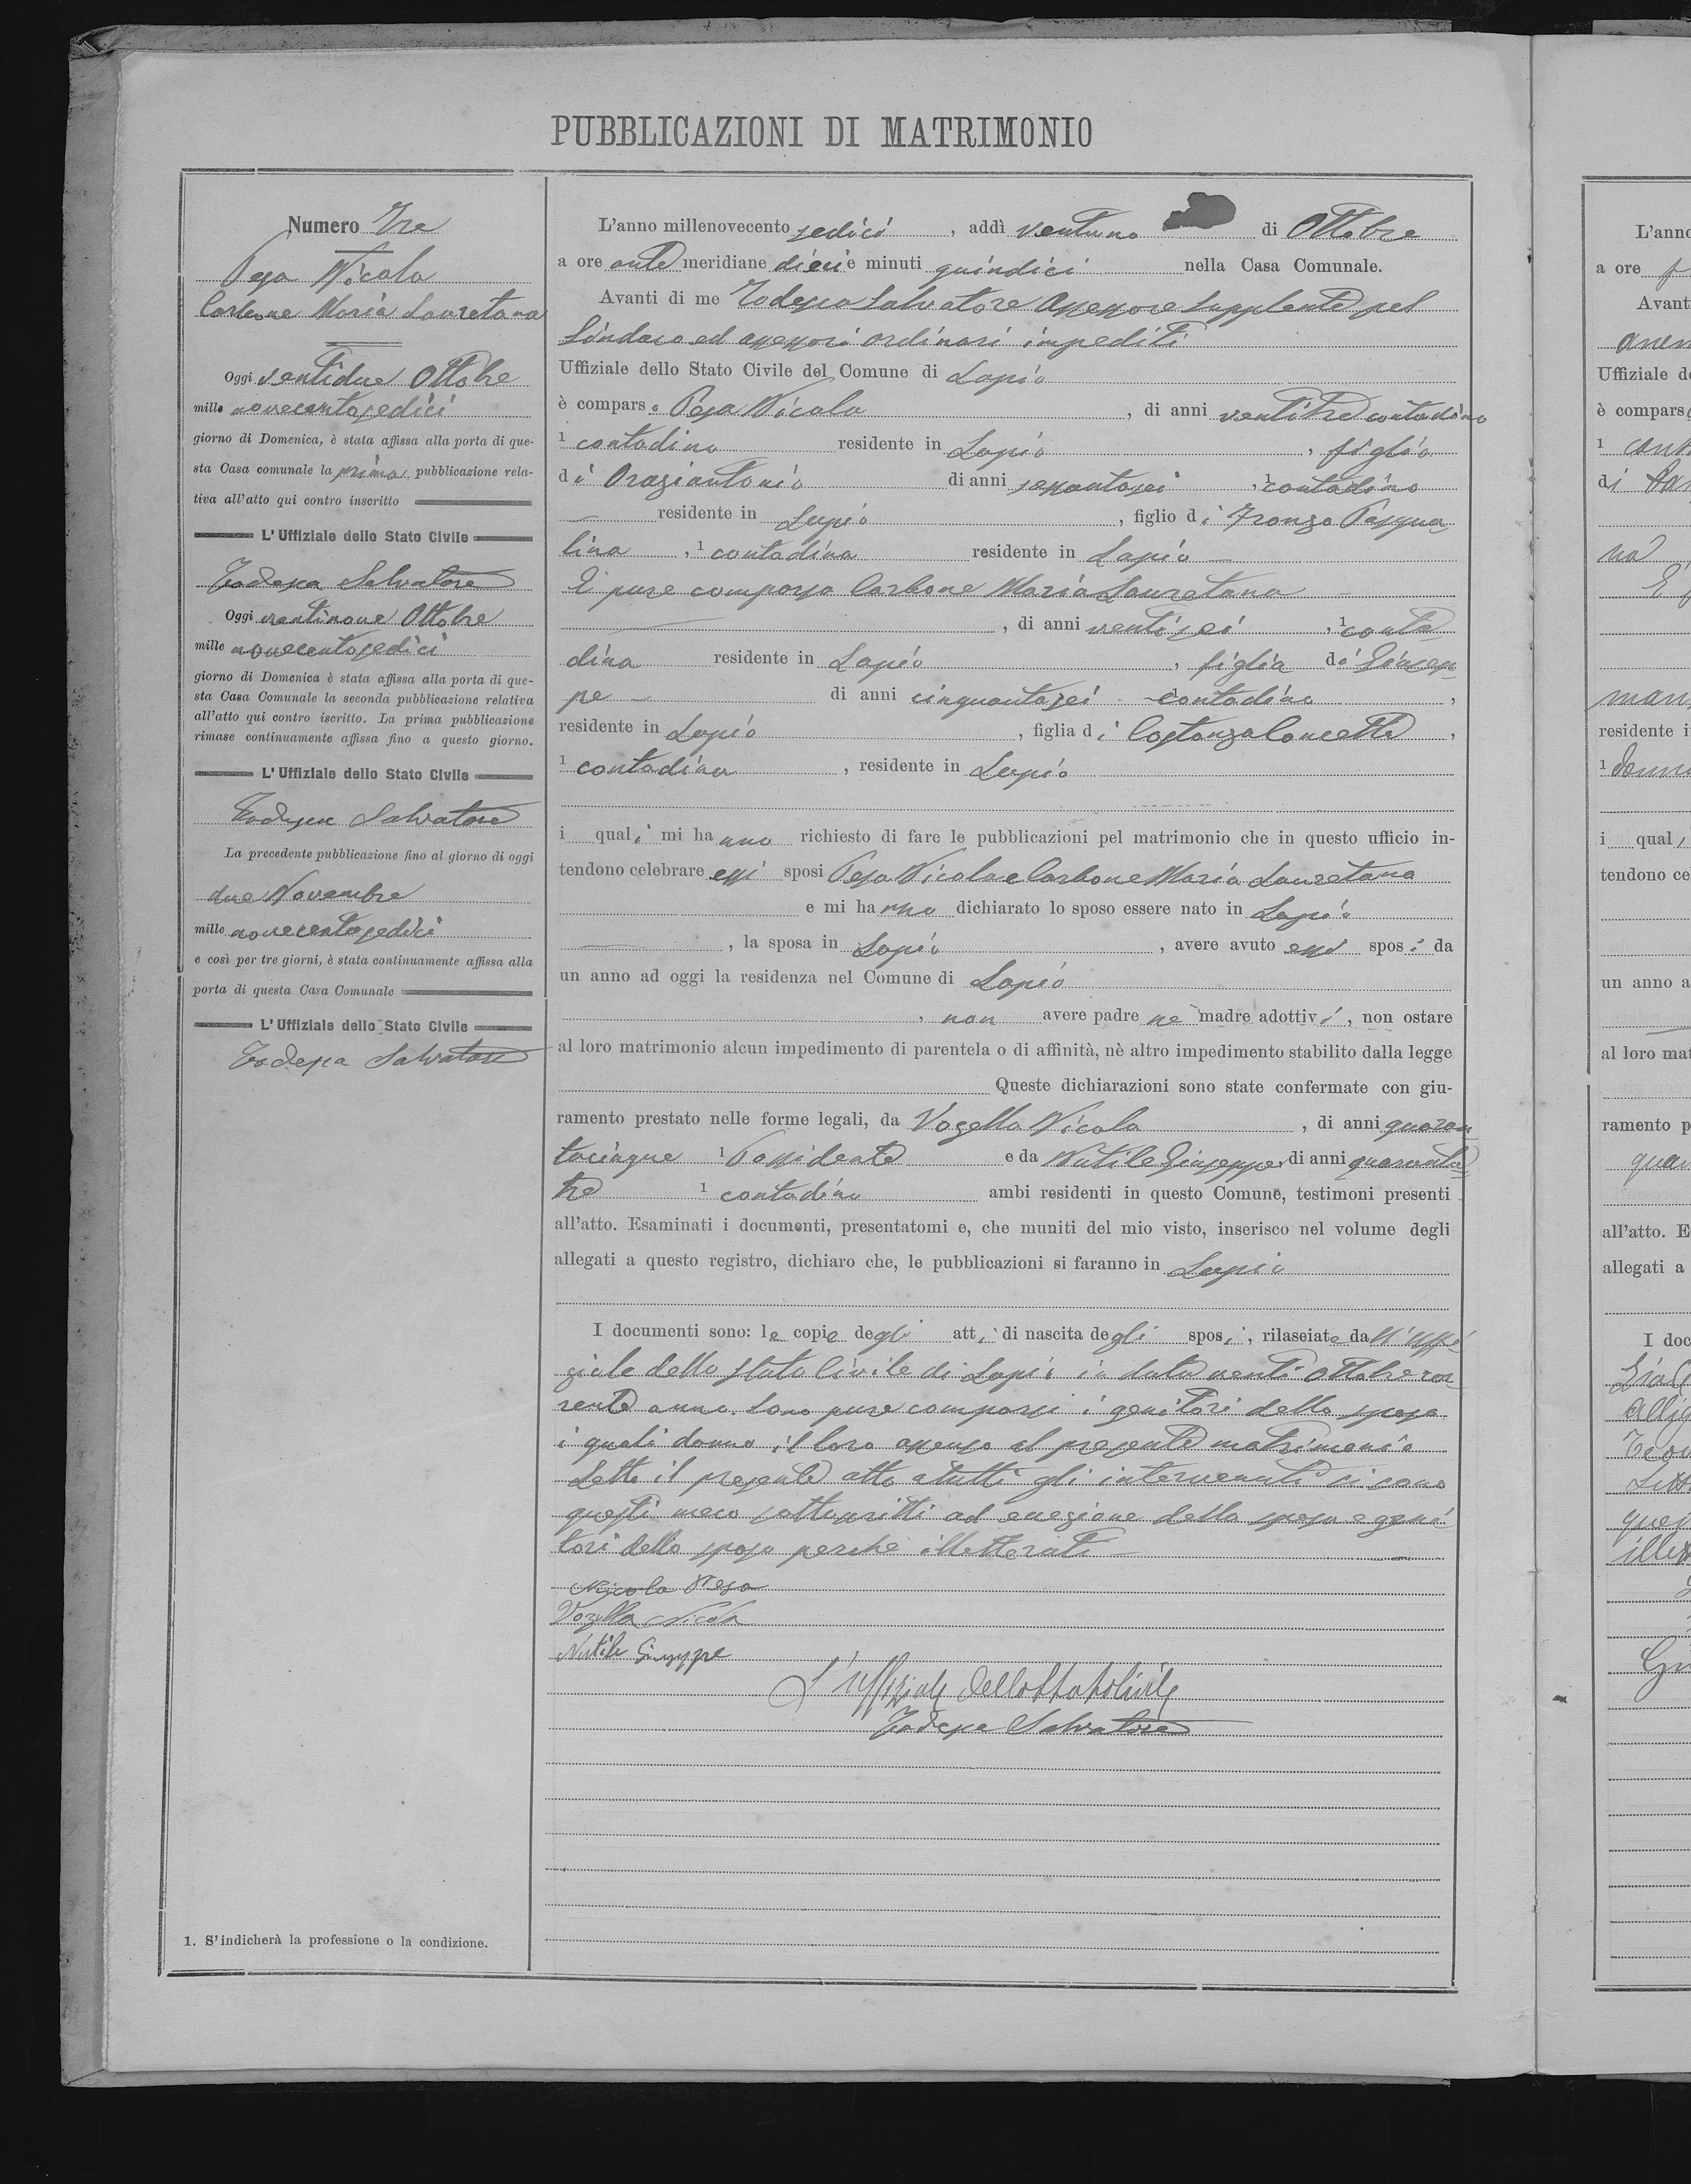 PUBBLICAZIONI DI MATRIMONIO
Numero Tre
Pesa Nicola
Carbone Maria Lauretana
Oggi ventidue Ottobre
mille novecentosedici
giorno di Domenica, è stata affissa alla porta di que-
sta Casa comunale la prima pubblicazione rela-
tiva all'atto qui contro inscritto
L'Uffiziale dello Stato Civile
Todesca Salvatore
Oggi ventinove Ottobre
mille novecentosedici
giorno di Domenica è stata affissa alla porta di que-
sta Casa Comunale la seconda pubblicazione relativa
all'atto qui contro iscritto. La prima pubblicazione
rimase continuamente affissa fino a questo giorno.
L'Uffiziale dello Stato Civile
Todesca Salvatore
La precedente pubblicazione fino al giorno di oggi
due Novembre
mille novecentosedici
e così per tre giorni, è stata continuamente affissa alla
porta di questa Casa Comunale
L'Uffiziale dello Stato Civile
Todesca Salvatore
1. S'indicherà la professione o la condizione.
L'anno millenovecento sedici, addì ventuno di Ottobre
a ore ante meridiane dieci e minuti quindici nella Casa Comunale.
Avanti di me Todesca Salvatore Assessore Supplente pel
Sindaco ed assessori ordinari impediti
Uffiziale dello Stato Civile del Comune di Lapio
è comparso Pesa Nicola, di anni ventitre contadino
1 contadino residente in Lapio, figlio
di Oraziantonio di anni sessantasei, 1 contadino
residente in Lapio, figlio di Fronzo Pasqua
lina, 1 contadina residente in Lapio
È pure comparsa Carbone Maria Lauretana
, di anni ventisei, 1 conta
dina residente in Lapio, figlia di Giusep
pe di anni cinquantasei contadino,
residente in Lapio, figlia di Costanza Concetta,
1 contadina, residente in Lapio
i quali mi hanno richiesto di fare le pubblicazioni pel matrimonio che in questo ufficio in-
tendono celebrare essi sposi Pesa Nicola e Carbone Maria Lauretana
e mi hanno dichiarato lo sposo essere nato in Lapio
, la sposa in Lapio, avere avuto essi sposi da
un anno ad oggi la residenza nel Comune di Lapio
, non avere padre nè madre adottivi, non ostare
al loro matrimonio alcun impedimento di parentela o di affinità, nè altro impedimento stabilito dalla legge
Queste dichiarazioni sono state confermate con giu-
ramento prestato nelle forme legali, da Vozella Nicola, di anni quaran
tacinque 1 Possidente e da Nutile Giuseppe, di anni quaranta
tre 1 contadino ambi residenti in questo Comune, testimoni presenti
all'atto. Esaminati i documenti, presentatomi e, che muniti del mio visto, inserisco nel volume degli
allegati a questo registro, dichiaro che, le pubblicazioni si faranno in Lapio
I documenti sono: le copie degli atti di nascita degli sposi, rilasciate dall'uffi
ziale dello Stato Civile di Lapio in data venti Ottobre cor
rente anno. Sono pure comparsi i genitori dello sposo
i quali danno il loro assenso al presente matrimonio
Letto il presente atto a tutti gli intervenuti si sono
questi meco sottoscritti ad eccezione della sposa e geni
tori dello sposo perchè illetterati
Nicola Pesa
Vozella Nicola
Nutile Giuseppe
L'uffiziale Dello Stato Civile
Todesca Salvatore
L'anno
a ore
Avanti
Uffiziale de
è compars
1
di
residente i
1 donna
i qual
tendono ce
un anno a
al loro mat
ramento p
all'atto. E
allegati a
I doc